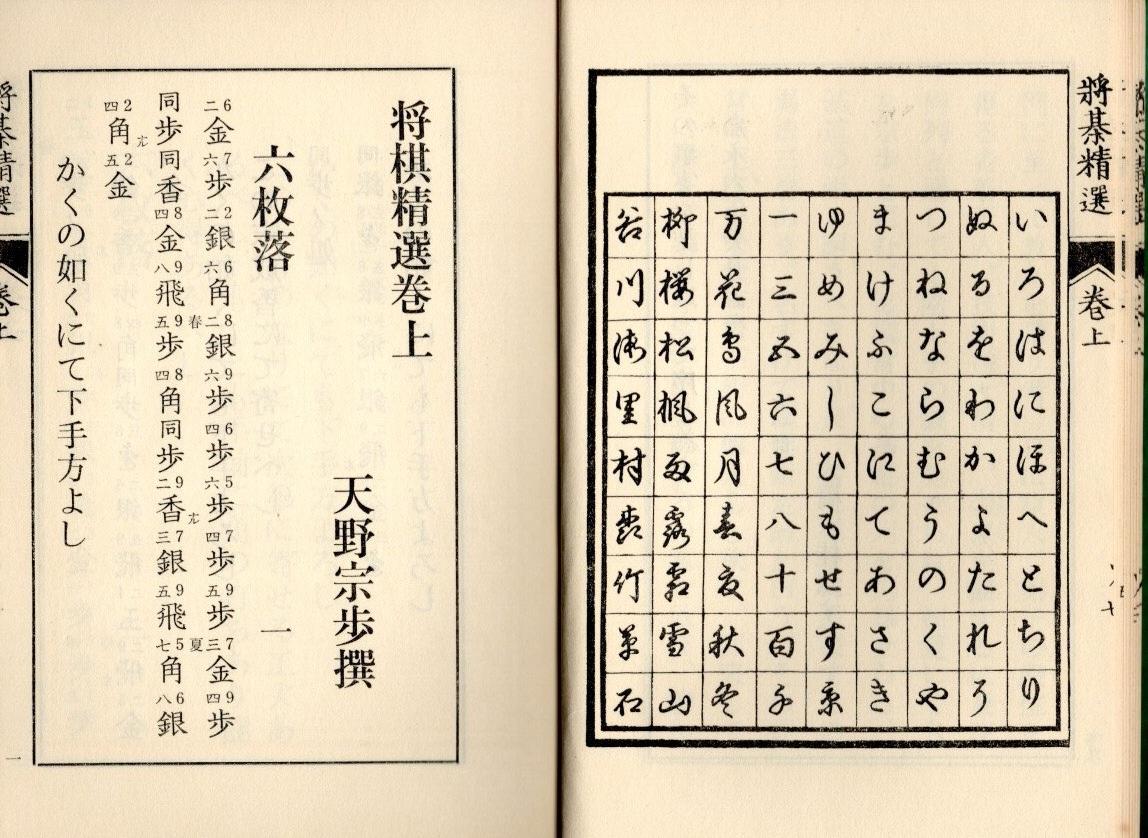 將棊精選
卷上
いろはにほへとちり
ぬるをわかよたれそ
つねならむうのくや
まけふこえてあさき
ゆめみしひもせす京
一三五六七八十百千
万花鳥風月春夏秋冬
柳桜松楓雨露霜雪山
谷川海里村竹草石
将棋精選巻上
天野宗歩撰
六枚落 一
6二金 7六歩 2二銀 6六角 8二銀 9六歩 6四歩 5六歩 7四歩 9五歩 7三金 9四歩
同歩 同香 8四金 9八飛 春 9五歩 8四角 同歩 9二香成 7三銀 9五飛 夏 5七角 6八銀
2四角成 2五金
かくの如くにて下手方よし
將棊精選
卷上
一